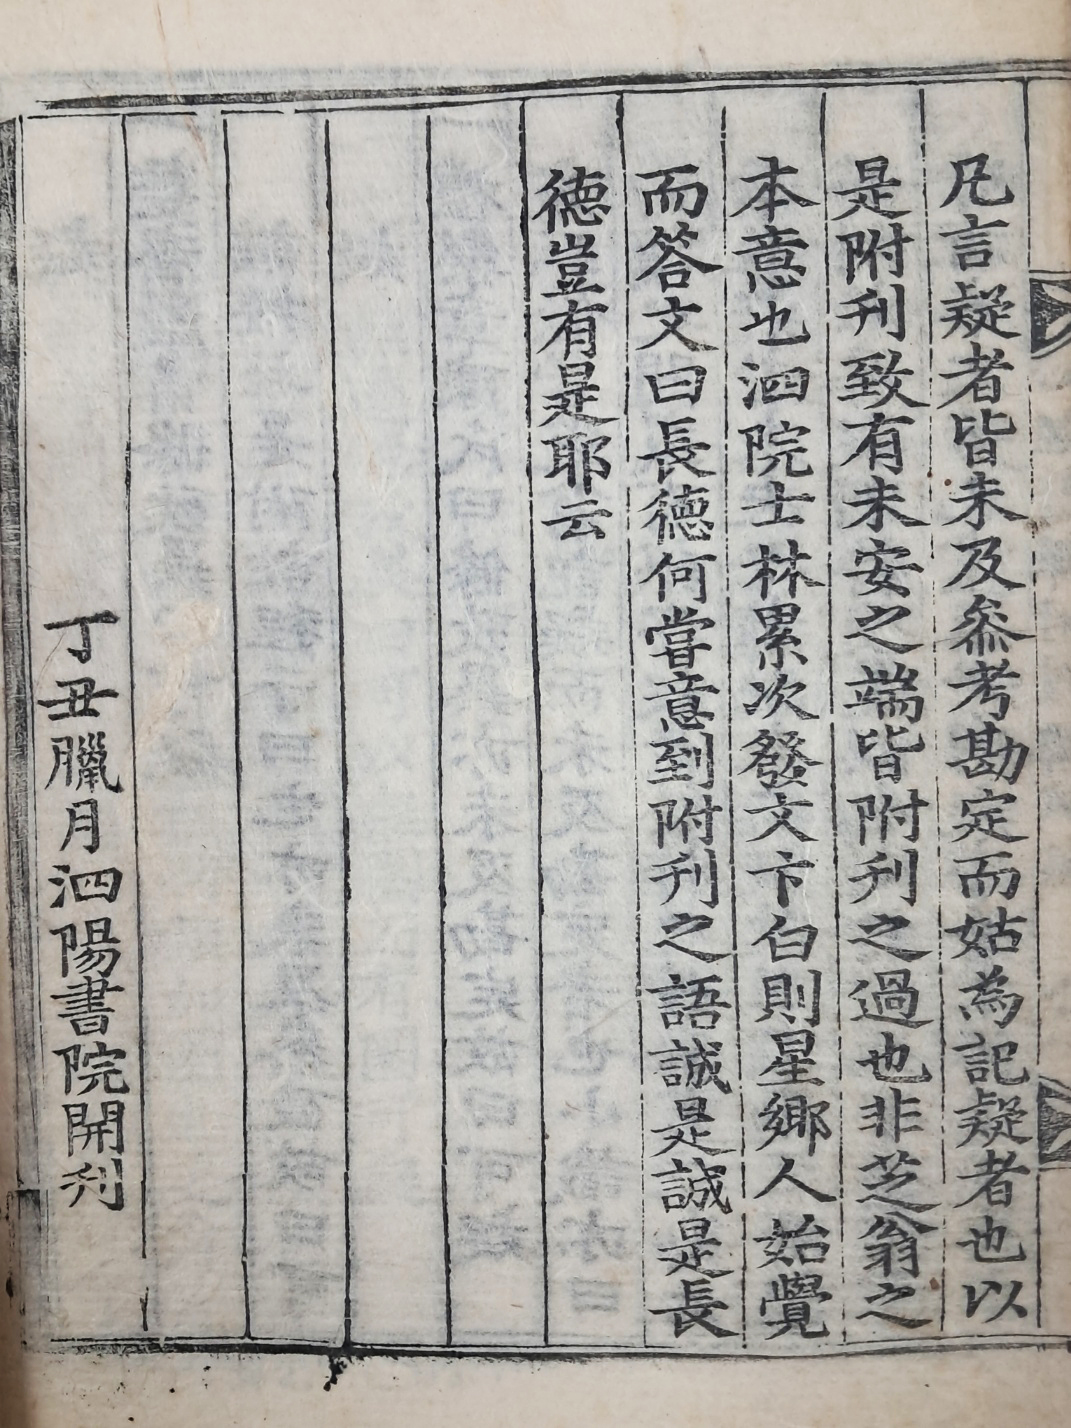 凡言疑者皆未及叅考勘定而姑為記疑者也以
是附刊致有未安之端皆附刊之過也非芝翁之
本意也泗院士林累次發文卞白則星鄉人始覺
而答文曰長德何嘗意到附刊之語誠是誠是長
德豈有是耶云
丁丑臘月泗陽書院開刊